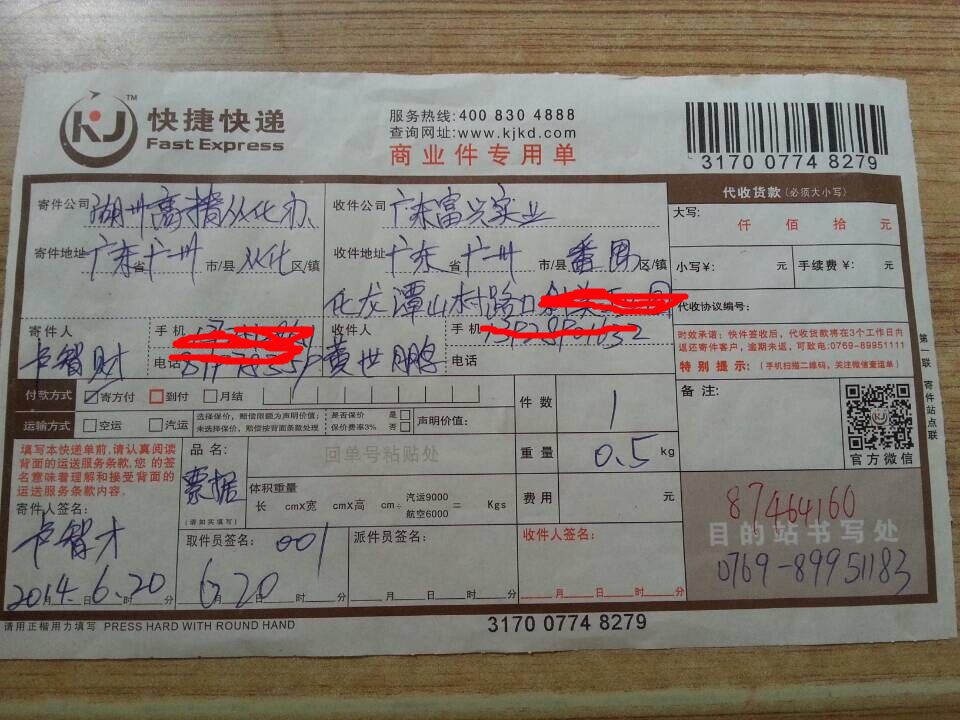 KJ TM 快捷快递
Fast Express
服务热线:400 830 4888
查询网址:www.kjkd.com
商业件专用单
3170 0774 8279
寄件公司 湖州 从化办
收件公司 广东富兴实业
寄件地址 广东省 广州 市/县 从化 区/镇
收件地址 广东省 广州 市/县 番禺 区/镇
化龙潭山村路口
寄件人 卢智财
手机
电话
收件人 黄世鹏
手机
电话
付款方式 寄方付 到付 月结
运输方式 空运 汽运
选择保价,赔偿限额为声明价值;
未选择保价,赔偿按背面条款处理
是否保价 是
保价费率3% 否
声明价值:
件数 1
重量 0.5 kg
费用 元
代收货款(必须大小写)
大写: 仟 佰 拾 元
小写¥: 元 手续费¥: 元
代收协议编号:
时效承诺:快件签收后,代收货款将在3个工作日内
返还寄件客户,逾期未返,可致电:0769-89951111
特别提示:(手机扫描二维码,关注微信查运单)
备注:
官方微信
第一联 寄件站点联
填写本快递单前,请认真阅读
背面的运送服务条款,您的签
名意味着理解和接受背面的
运送服务条款内容.
寄件人签名:
卢智才
2014.6.20
月 日 时 分
品名:
票据
(请如实填写)
回单号粘贴处
体积重量
长 cmX宽 cmX高 cm÷ 汽运9000 航空6000 = Kgs
取件员签名: 001
6.20
月 日 时 分
派件员签名:
月 日 时 分
收件人签名:
月 日 时 分
87464160
目的站书写处
0769-89951183
请用正楷用力填写 PRESS HARD WITH ROUND HAND
3170 0774 8279